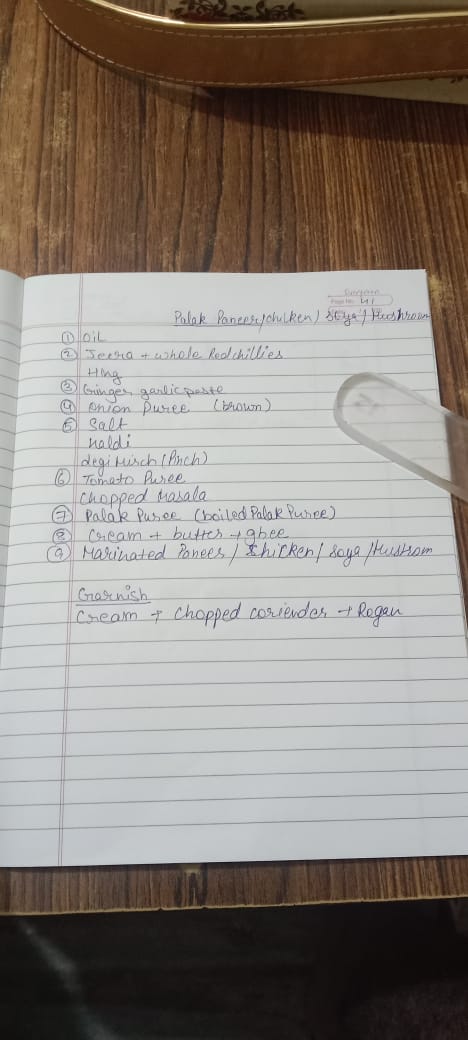 Page No. 41
Palak Paneer/chicken/ Soya/ Mushroom
① Oil
② Jeera + whole Red chillies
Hing
③ Ginger garlic paste
④ Onion Puree (brown)
⑤ Salt
haldi
degi Mirch (Pinch)
⑥ Tomato Puree
Chopped Masala
⑦ Palak Puree (boiled Palak Puree)
⑧ Cream + butter + ghee
⑨ Marinated Paneer / Chicken / Soya / Mushrom
Garnish
Cream + Chopped coriender + Rogan